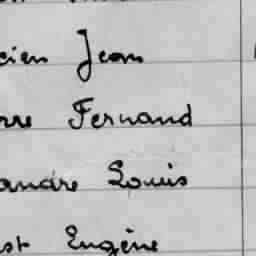 cien Jean
rre Fernand
andre Louis
st Eugène